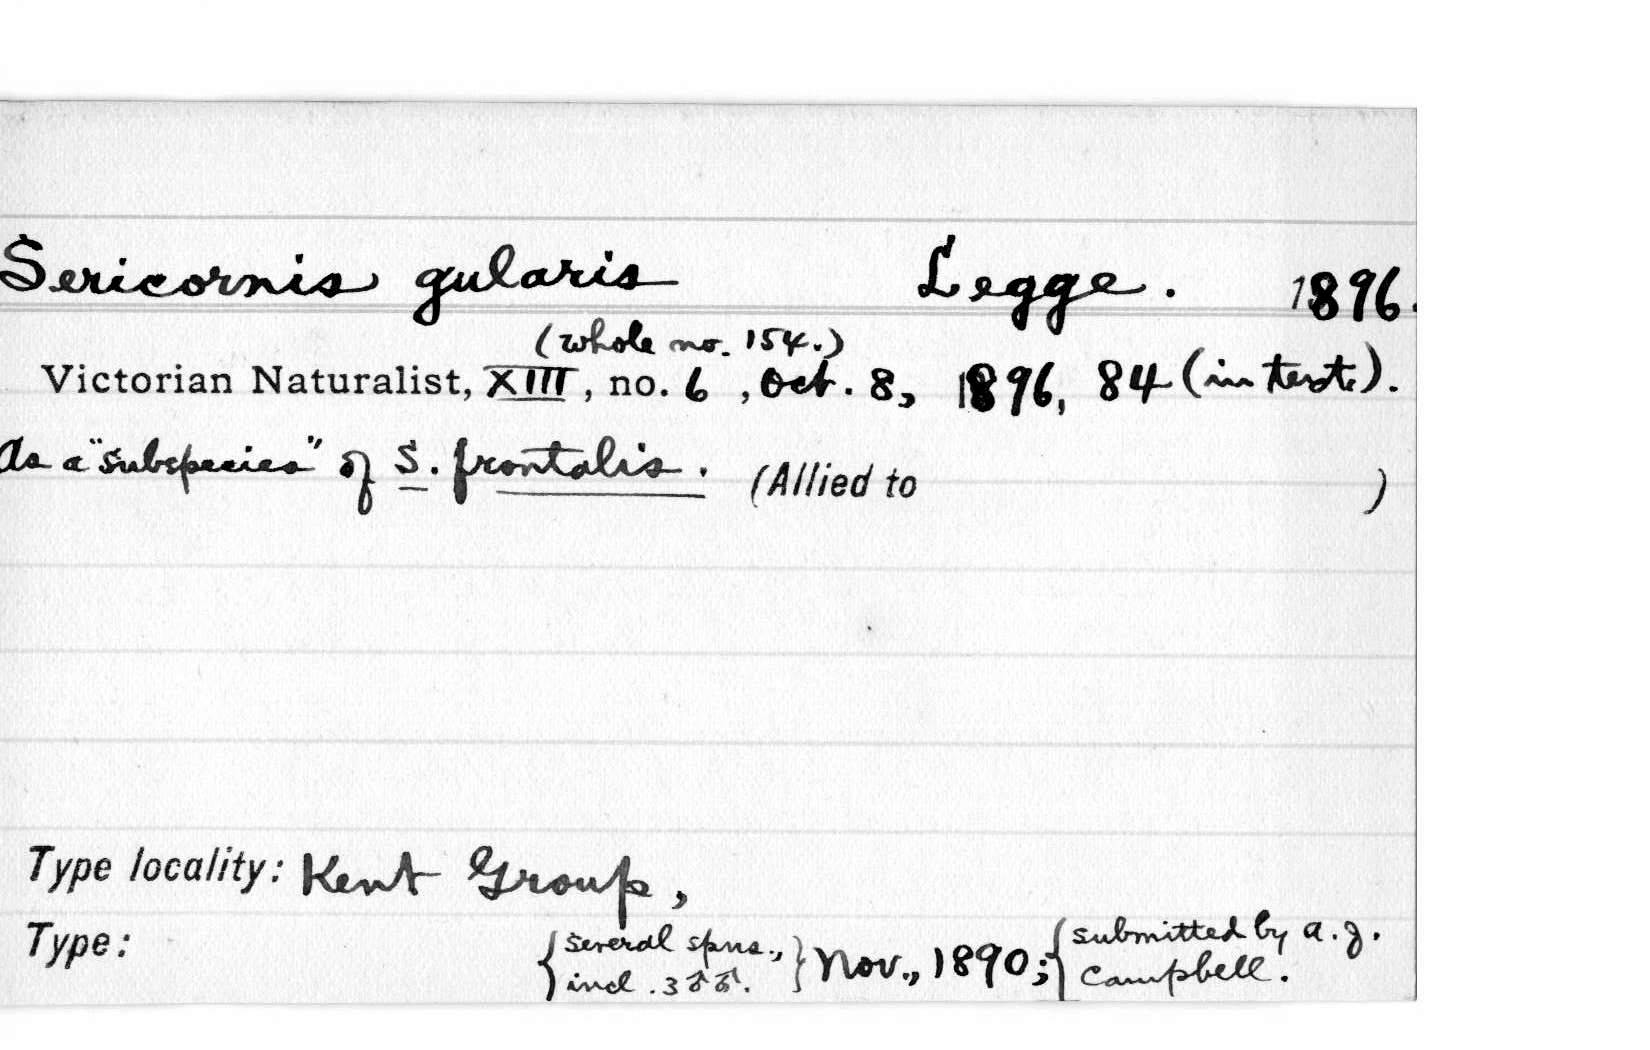 Sericornis gularis Legge. 1896.
(whole no. 154.)
Victorian Naturalist, XIII, no. 6, Oct. 8, 1896, 84 (in text).
As a "subspecies" of S. frontalis. (Allied to )
Type locality: Kent Group,
Type: {several spns., incl. 3 ♂♂.} Nov., 1890; {submitted by A. J. Campbell.